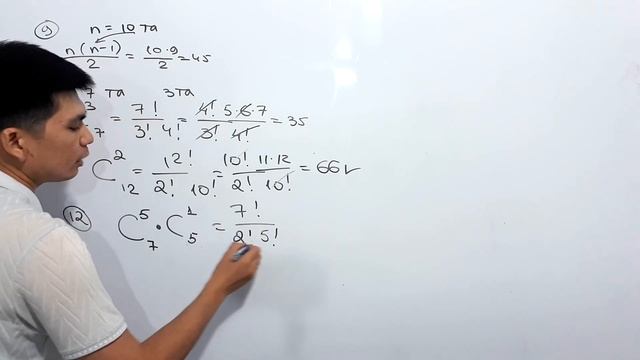 ⑨ n = 10 та
n(n-1)/2 = 10·9/2 = 45
7 та 3 та
3 7 = 7!/3! 4! = 4! 5·6·7/3! 4! = 35
C₁₂² = 12!/2! 10! = 10! 11·12/2! 10! = 66 ✓
⑫ C₇⁵ · C₅¹ = 7!/2! 5!